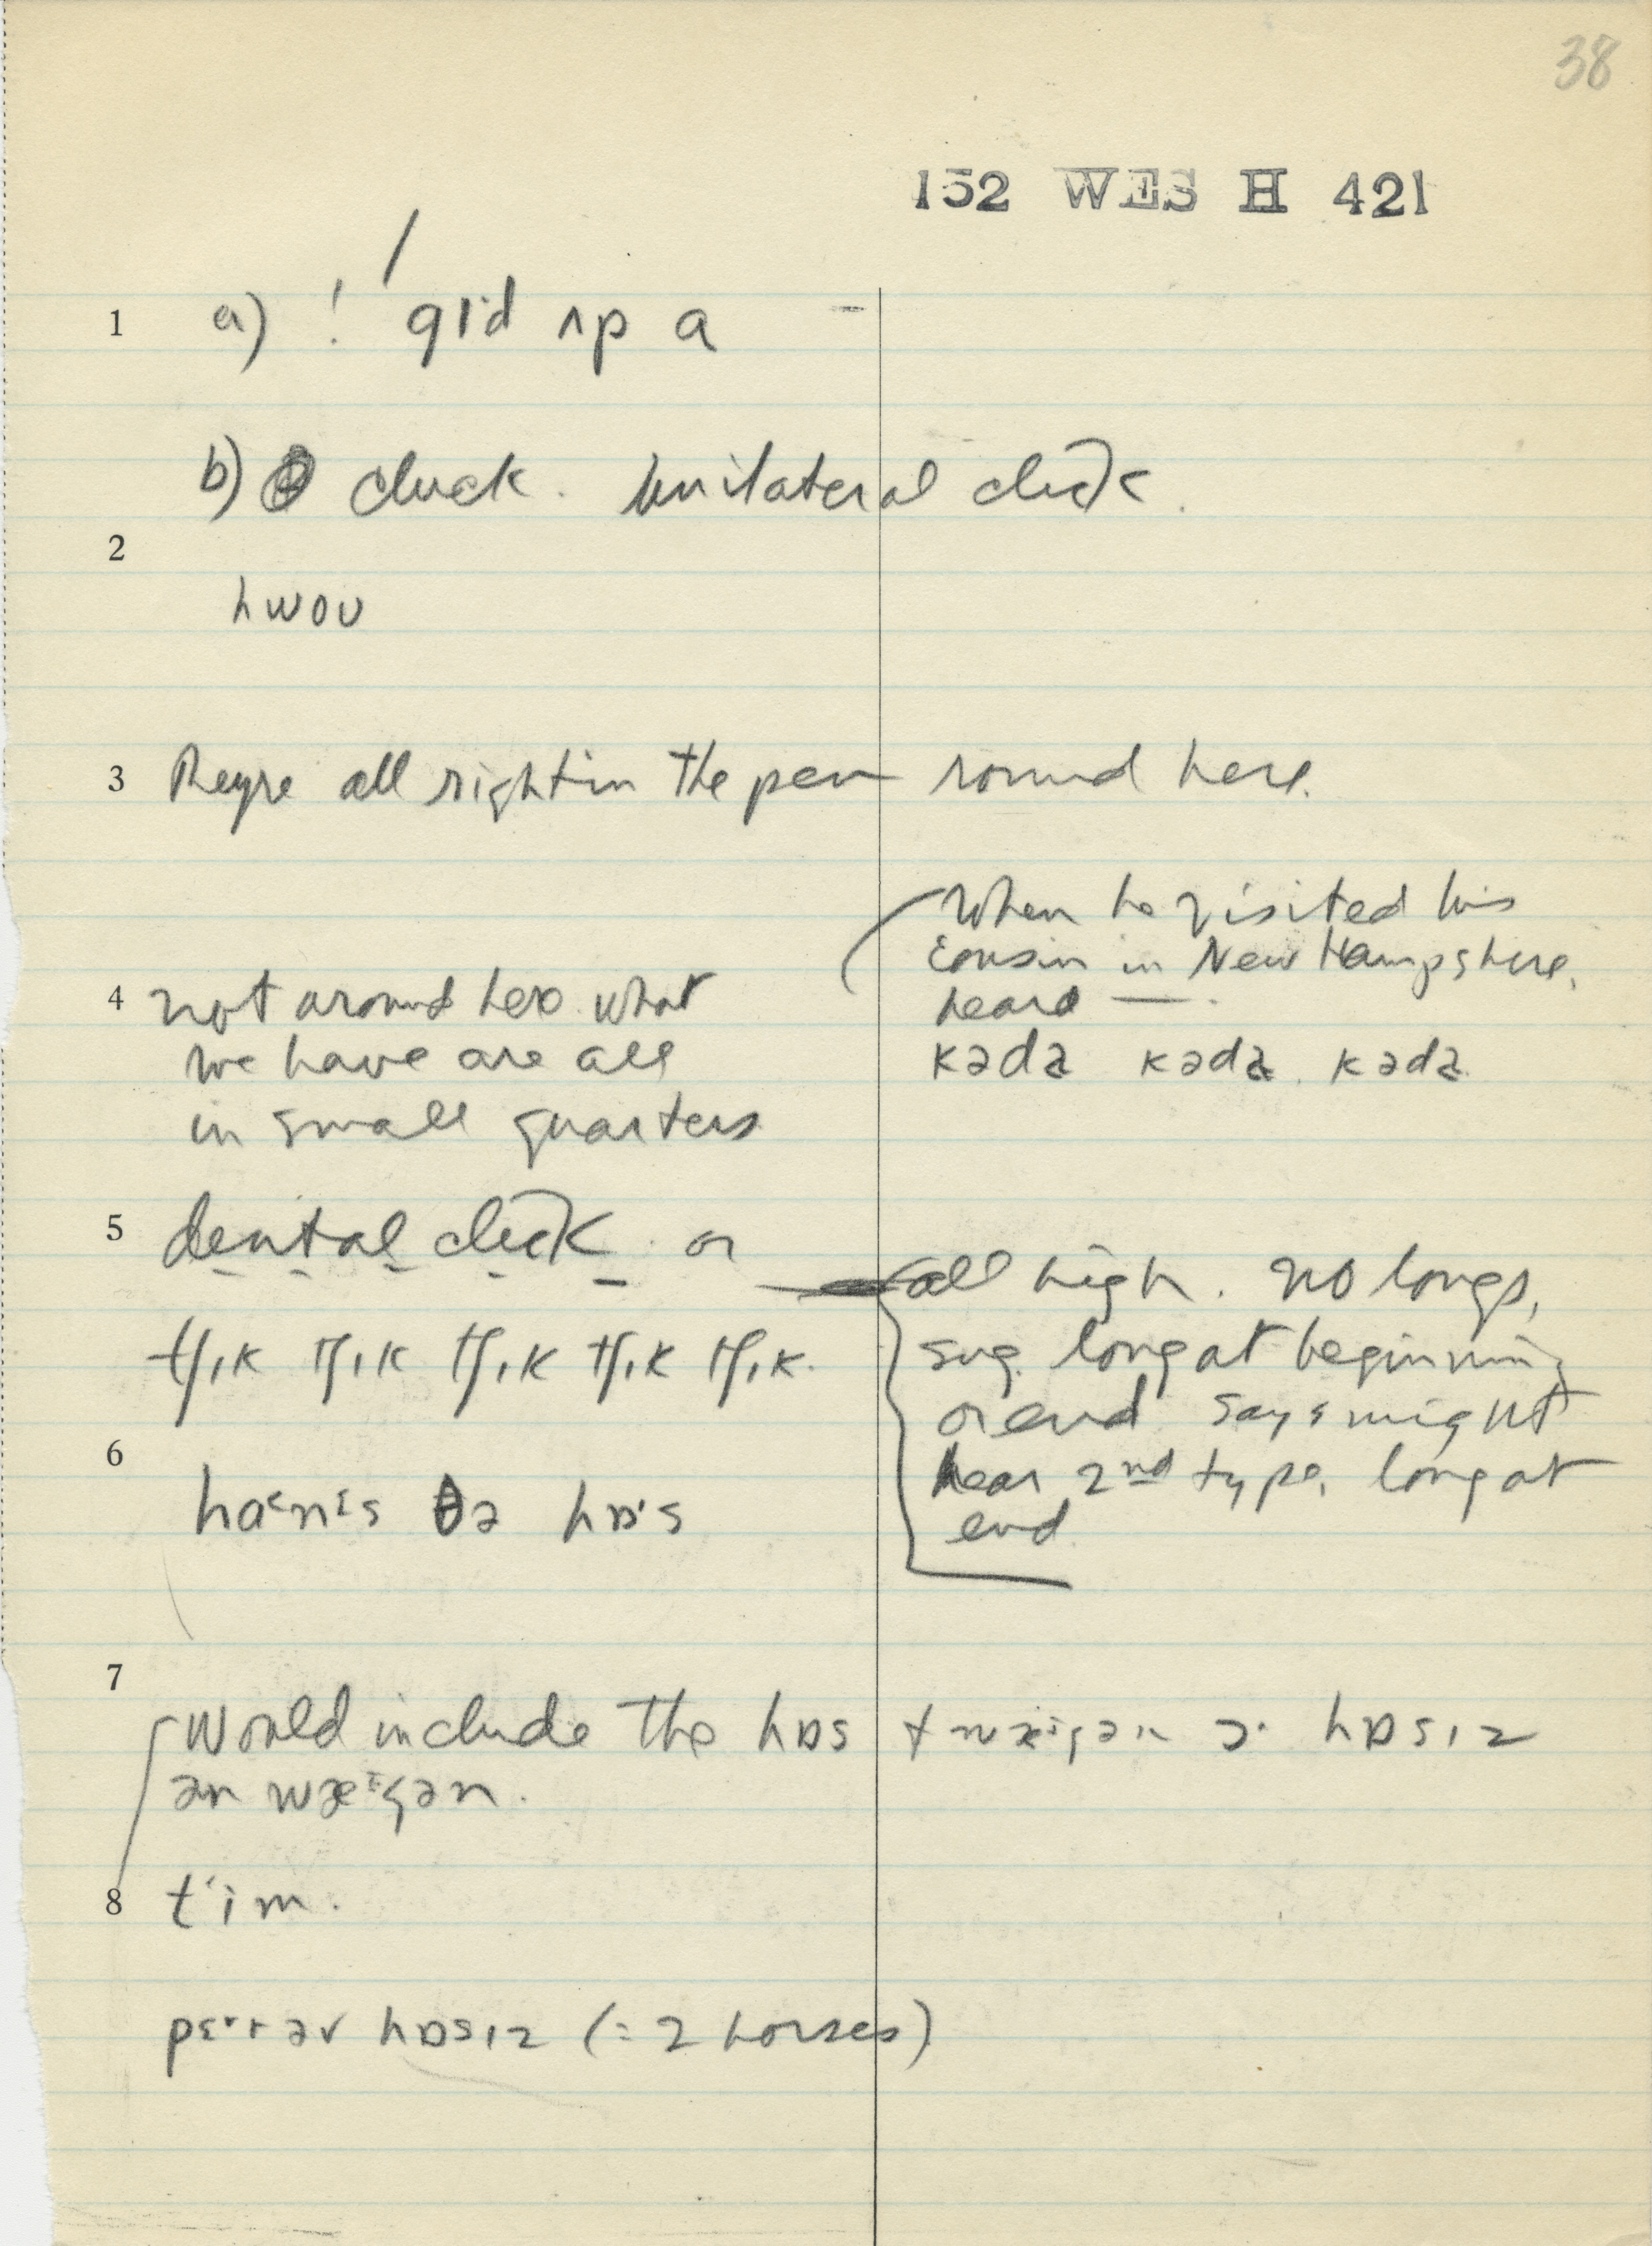 38
152 WES H 421
1 a) ! gɪd ʌp a
b) cluck. Unilateral click.
2
hwoʊ
3 They're all right in the pen round here.
When he visited his
cousin in New Hampshire,
heard —.
4 not around here what
we have are all
in small quarters
kədə kədə kədə
5 dental click or
tʃɪk tʃɪk tʃɪk tʃɪk tʃɪk.
all high. No longs,
sug. long at beginning
or end says might
hear 2nd type, long at
end.
6
ðə hɒˑs
7
Would include the hɒs
hɒsɪz
8 tʻim.
əv hɒsɪz (= 2 horses)